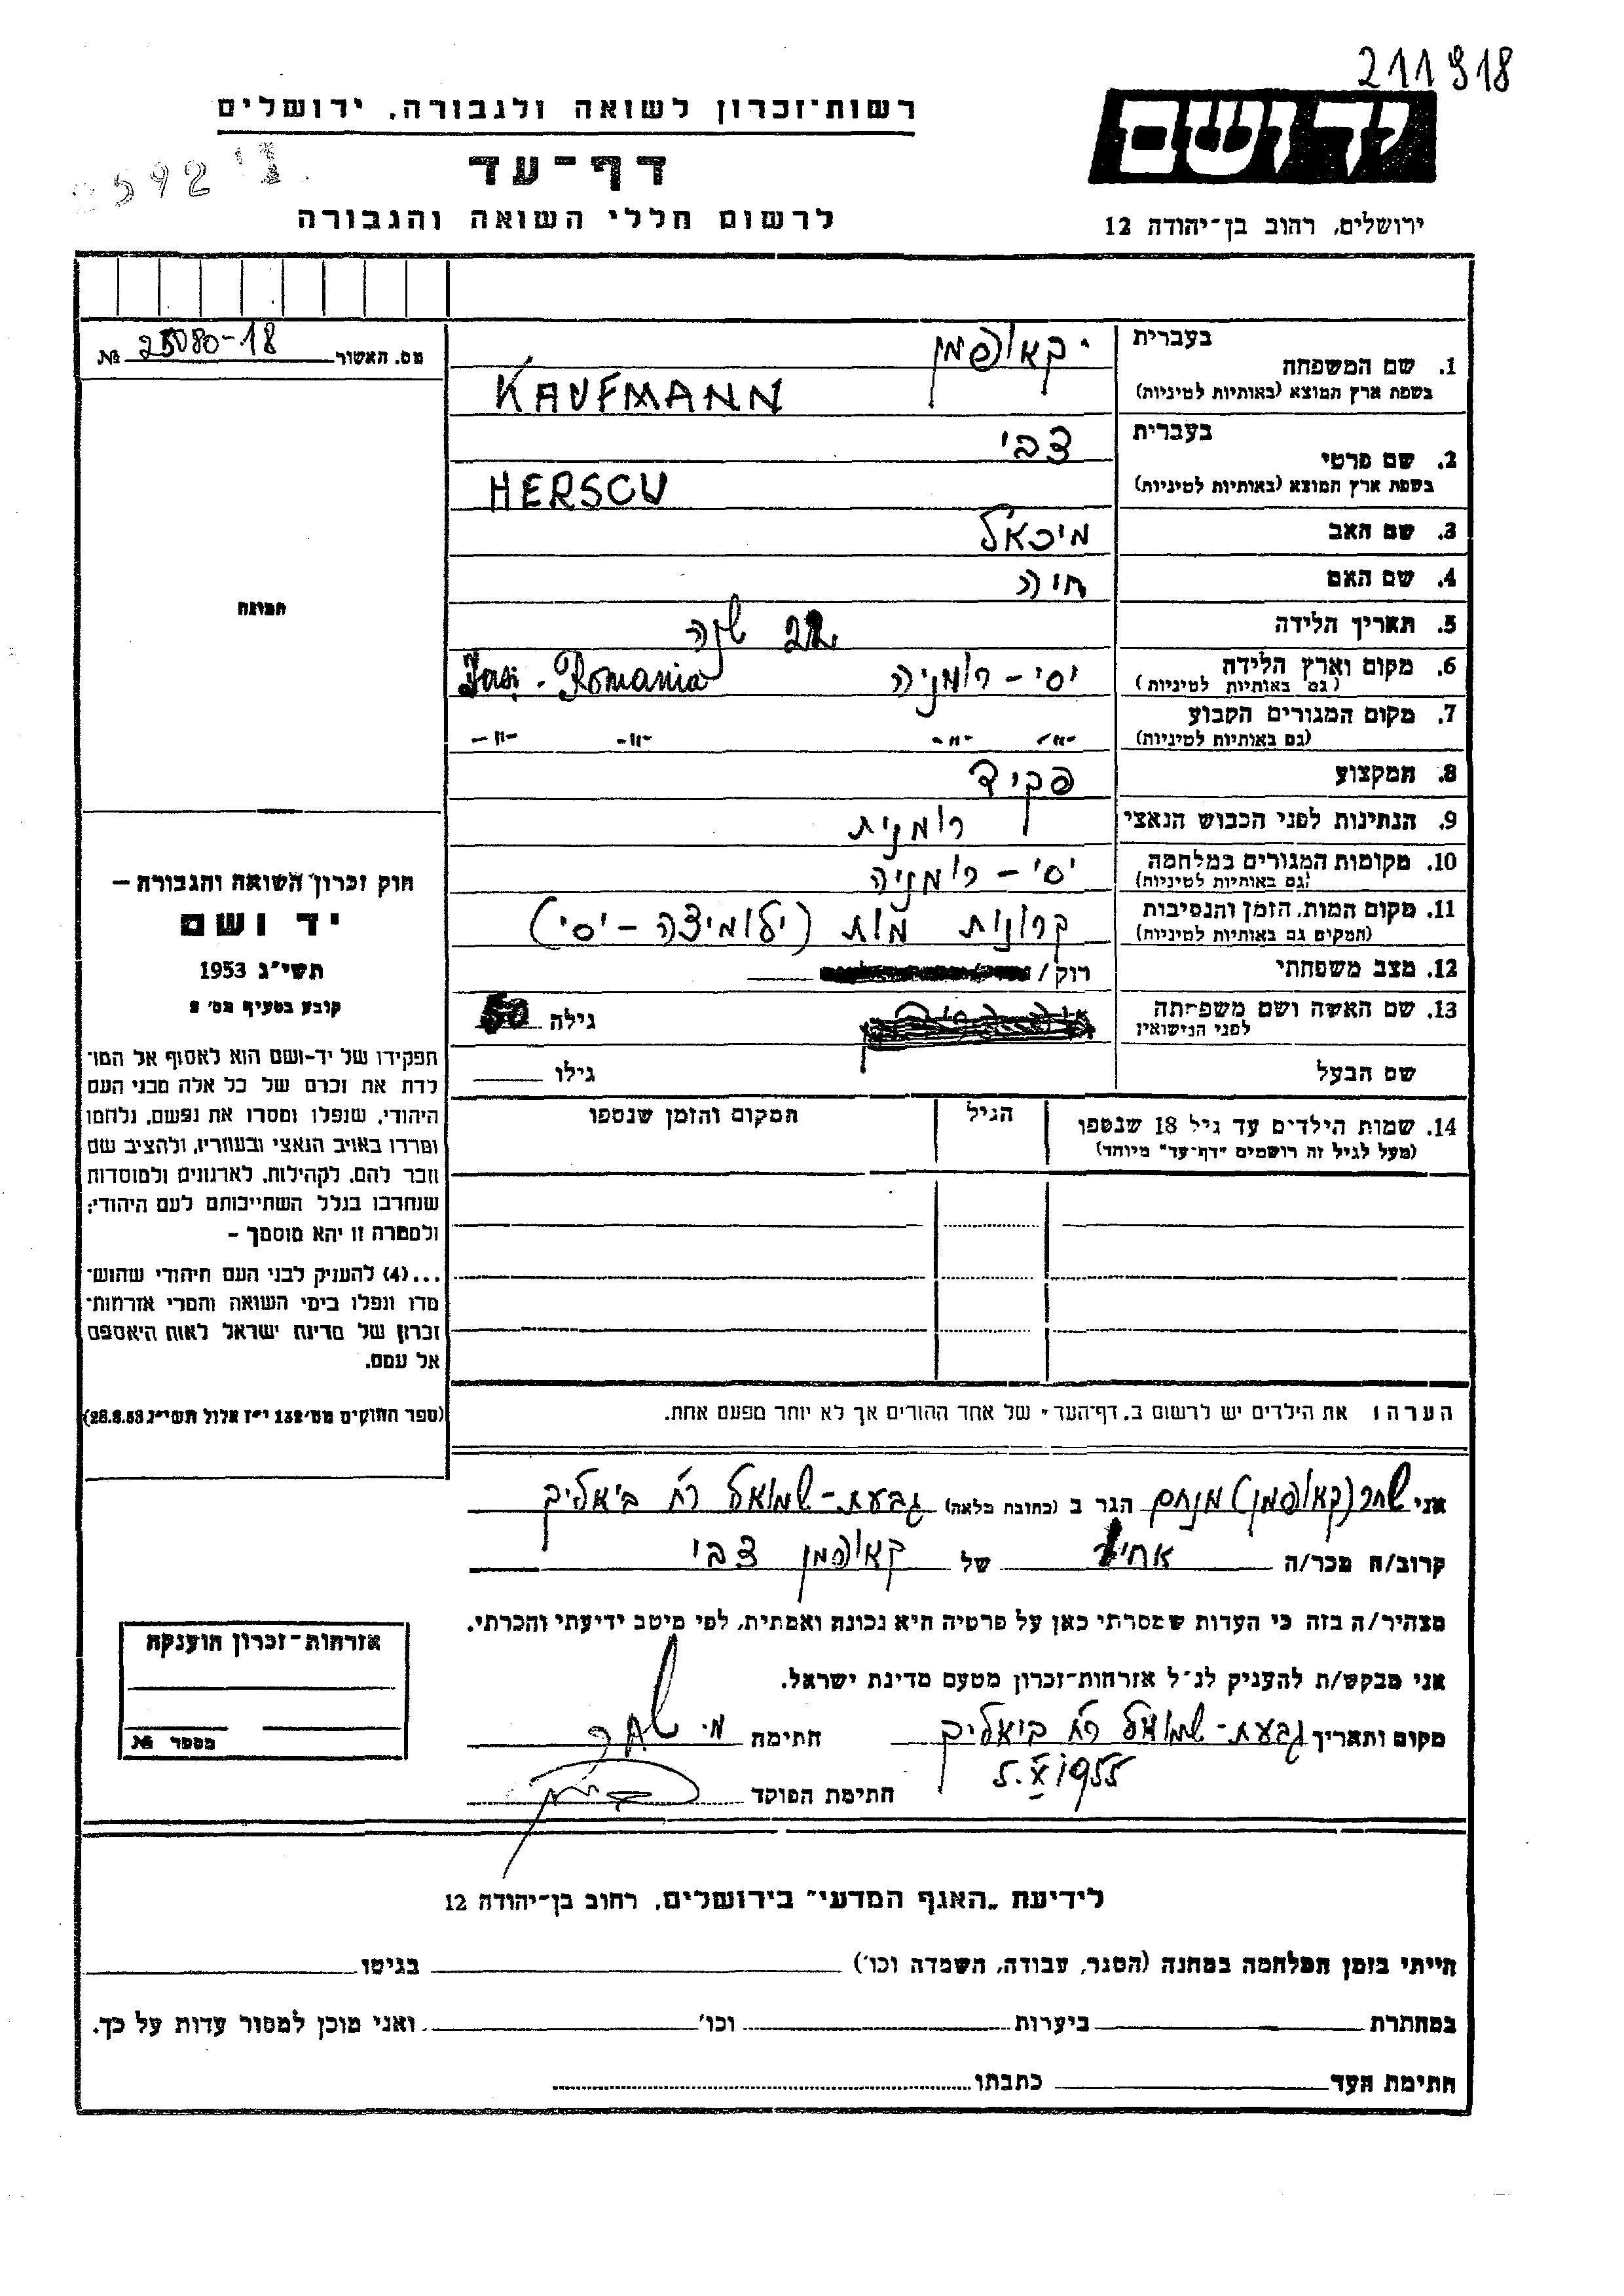 211918
רשות־זכרון לשואה ולגבורה, ירושלים
יד ושם
דף־עד
לרשום חללי השואה והגבורה
ירושלים, רחוב בן־יהודה 12
מס. האשור 25080-18 №
בעברית
1. שם המשפחה
קאופמן
בשפת ארץ המוצא (באותיות לטיניות)
KAUFMANN
בעברית
2. שם פרטי
צבי
בשפת ארץ המוצא (באותיות לטיניות)
HERSCU
3. שם האב מיכאל
4. שם האם חיה
תמונה
5. תאריך הלידה 22 שנה
6. מקום וארץ הלידה יסי - רומניה Iasi - Romania
(גם באותיות לטיניות)
7. מקום המגורים הקבוע
(גם באותיות לטיניות) -"- -"- -"- -"-
8. המקצוע פקיד
9. הנתינות לפני הכבוש הנאצי רומנית
10. מקומות המגורים במלחמה יסי - רומניה
(גם באותיות לטיניות)
11. מקום המות, הזמן והנסיבות קרונות מות (ילומיצה - יסי)
(המקום גם באותיות לטיניות)
12. מצב משפחתי רוק /
13. שם האשה ושם משפחתה גילה 50
לפני הנישואין
שם הבעל גילו
14. שמות הילדים עד גיל 18 שנספו הגיל המקום והזמן שנספו
(מעל לגיל זה רושמים "דף־עד" מיוחד)
חוק זכרון השואה והגבורה –
יד ושם
תשי"ג 1953
קובע בסעיף מס' 2
תפקידו של יד-ושם הוא לאסוף אל המו־
לדת את זכרם של כל אלה מבני העם
היהודי, שנפלו ומסרו את נפשם, נלחמו
ומרדו באויב הנאצי ובעוזריו, ולהציב שם
וזכר להם, לקהילות, לארגונים ולמוסדות
שנחרבו בגלל השתייכותם לעם היהודי;
ולמטרה זו יהא מוסמך –
...(4) להעניק לבני העם היהודי שהוש־
מדו ונפלו בימי השואה והמרי אזרחות־
זכרון של מדינת ישראל לאות היאספם
אל עמם.
(ספר החוקים מס' 132 י"ז אלול תשי"ג 28.8.53)
הערה: את הילדים יש לרשום ב„דף־העד" של אחד ההורים אך לא יותר מפעם אחת.
אני שחר (קאופמן) מנחם הגר ב (כתובת מלאה) גבעת-שמואל רח' ביאליק
קרוב/ה מכר/ה אחיו של קאופמן צבי
מצהיר/ה בזה כי העדות שמסרתי כאן על פרטיה היא נכונה ואמתית, לפי מיטב ידיעתי והכרתי.
אני מבקש/ת להעניק לנ"ל אזרחות־זכרון מטעם מדינת ישראל.
מקום ותאריך גבעת-שמואל רח' ביאליק חתימה מ. שחר
5.XI 1955
חתימת הפוקד
אזרחות־זכרון הוענקה
מספר №
לידיעת „האגף המדעי" בירושלים, רחוב בן־יהודה 12
הייתי בזמן המלחמה במחנה (הסגר, עבודה, השמדה וכו') בגיטו
במחתרת ביערות וכו' ואני מוכן למסור עדות על כך.
חתימת העד כתבתו